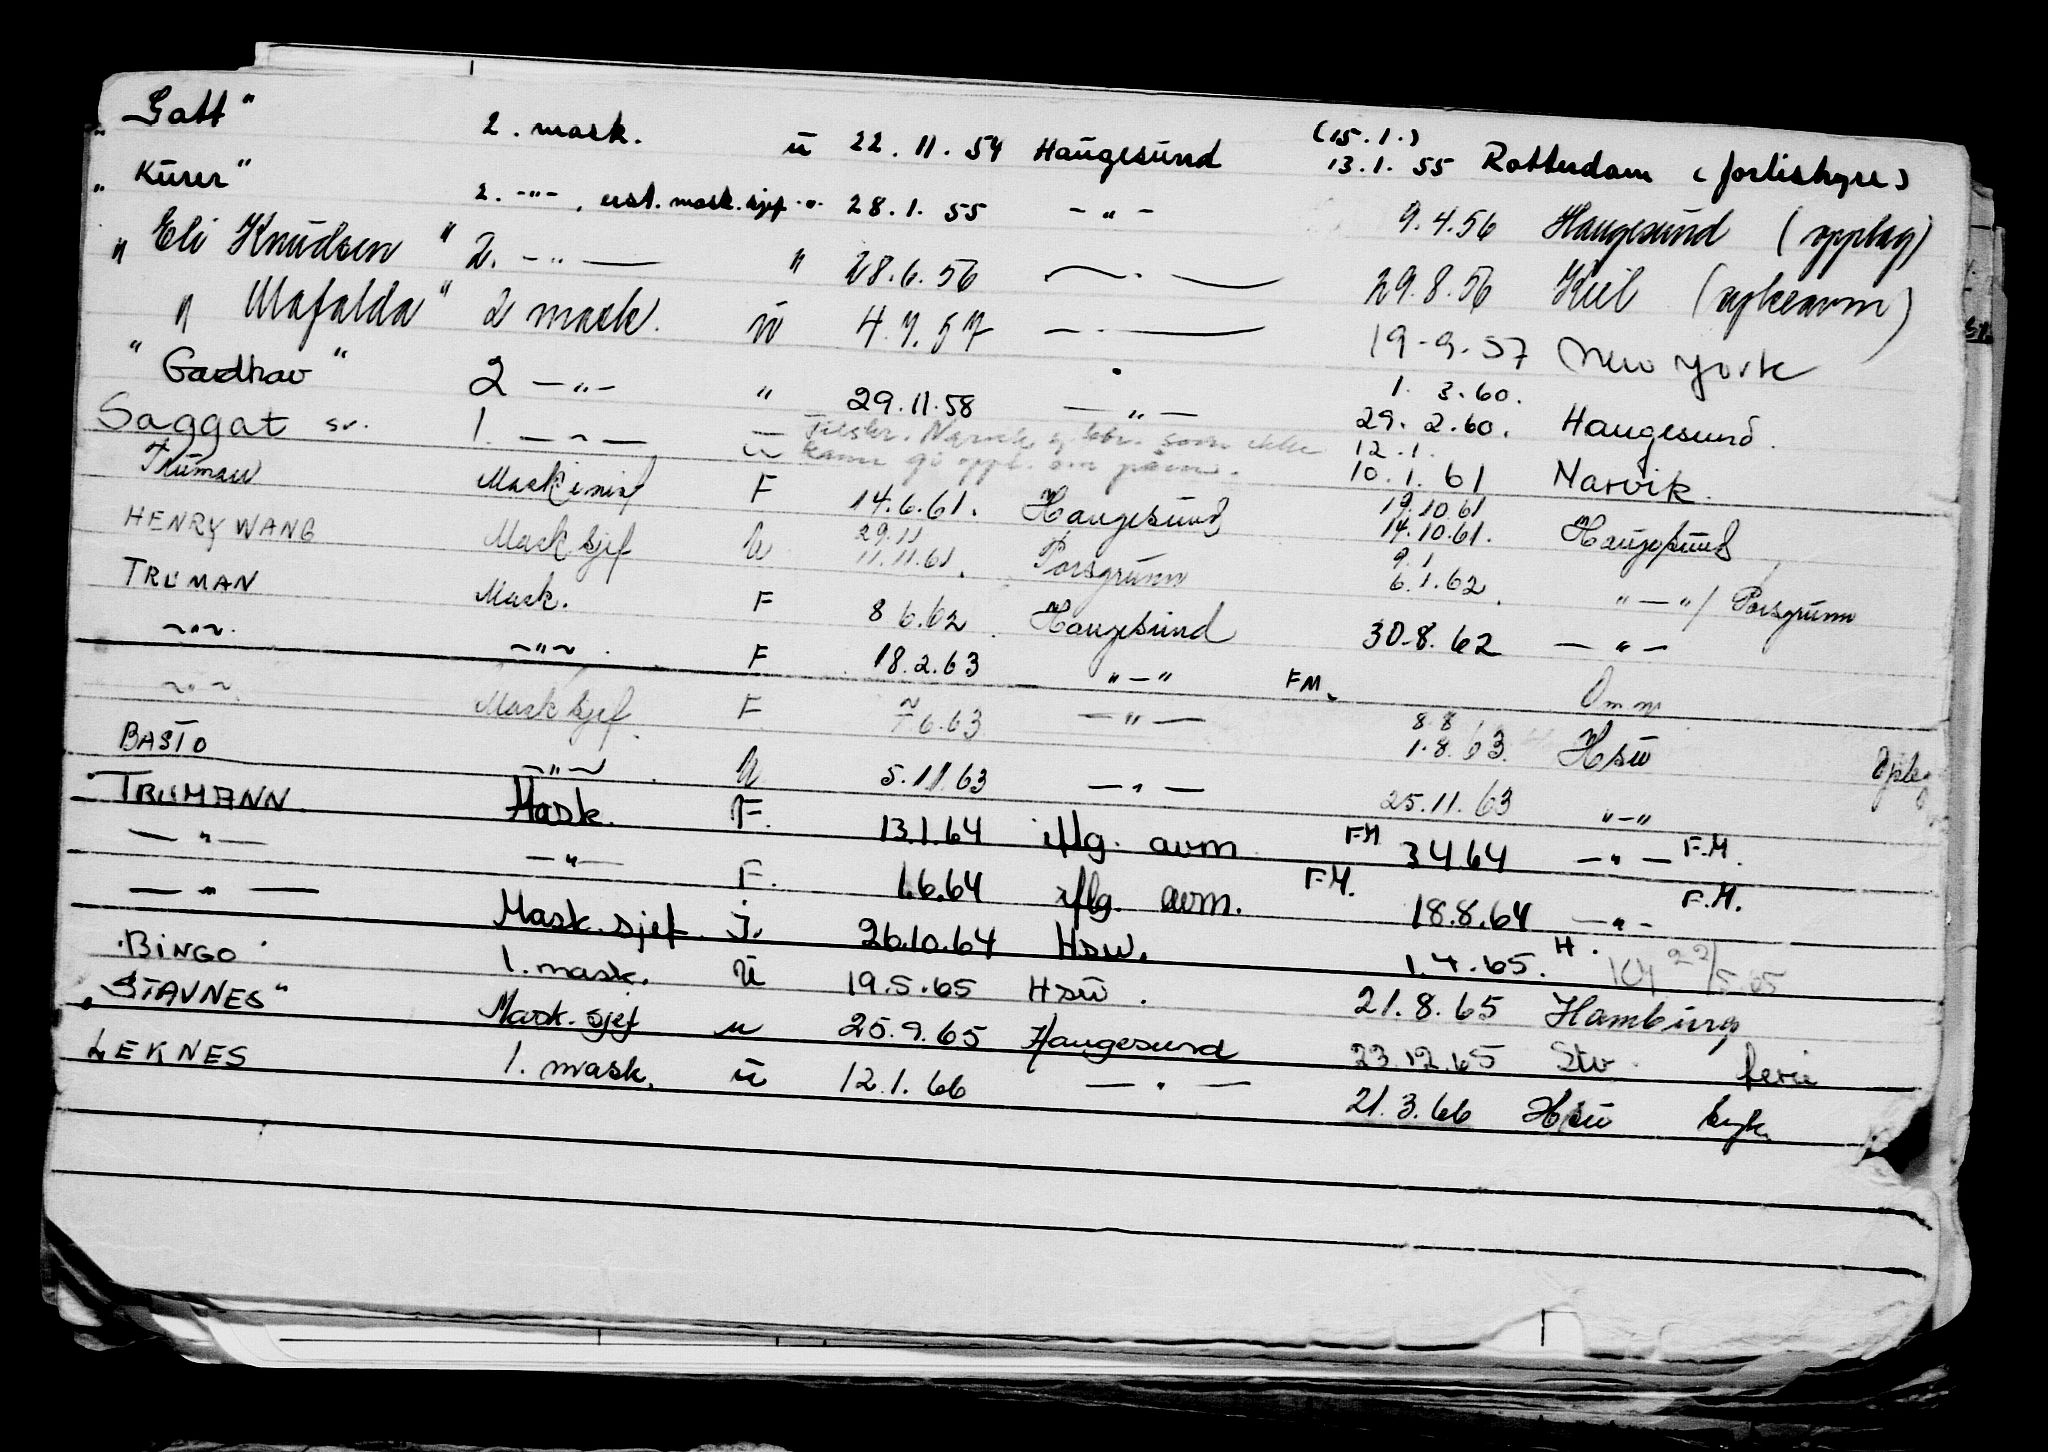 „ Gatt" 2. mask. ü 22.11.54 Haugesund (15.1.) 13.1.55 Rotterdam (forlishyre)
„ Kürer" 2. -"-, erst. mask.sjef -"- 28.1.55 -"- 9.4.56 Haugesund (opplag)
„ Eli Knudsen" 2. -"- " 28.6.56 -"- 29.8.56 Kiel (sykeavm)
„ Mafalda" 2 mask. ü 4.7.57 -"- 19-9.57 New York
"Gardhav" 2 -"- " 29.11.58 -"- 1.3.60. 29.2.60. Haugesund.
Saggat sv. 1. -"- Tilskr. Narvik som ikke kann gi oppl. om 12.1. 10.1.61 Narvik.
Truman Maskinist F 14.6.61. Haugesund 19.10.61 14.10.61. Haugesund
HENRY WANG Mask sjef U 29.11 11.11.61. Porsgrunn 9.1 6.1.62. "-"/Porsgrunn
TRUMAN Mask. F 8 6.62. Haugesund 30.8.62 -"-
-"-. -"-. F 18.2.63 "-" FM.
-"-. Mask sjef. F 7 6.63 -"- 8.8 1.8.63. Hsu
BASTO -"-. U 5.11.63 -"- 25.11.63 "-"
TRUMANN Mask. F. 13.1.64 iflg. avm FM 3 4 64 -"- F.M.
-"- -"- F. 1.6.64 iflg. avm. F.M. 18.8.64 -"- F.M.
-"- Mask.sjef J. 26.10.64 Hsu. 1.4.65. H. 22/5.65
"BINGO" 1. mask. ü 19.5.65 Hsü. 21.8.65 Hamburg
„STAVNES" Mask. sjef u 25.9.65 Haugesund 23.12.65 Stv. ferie
LEKNES 1. mask. ü 12.1.66 -"- 21.3.66 Hsu syk.